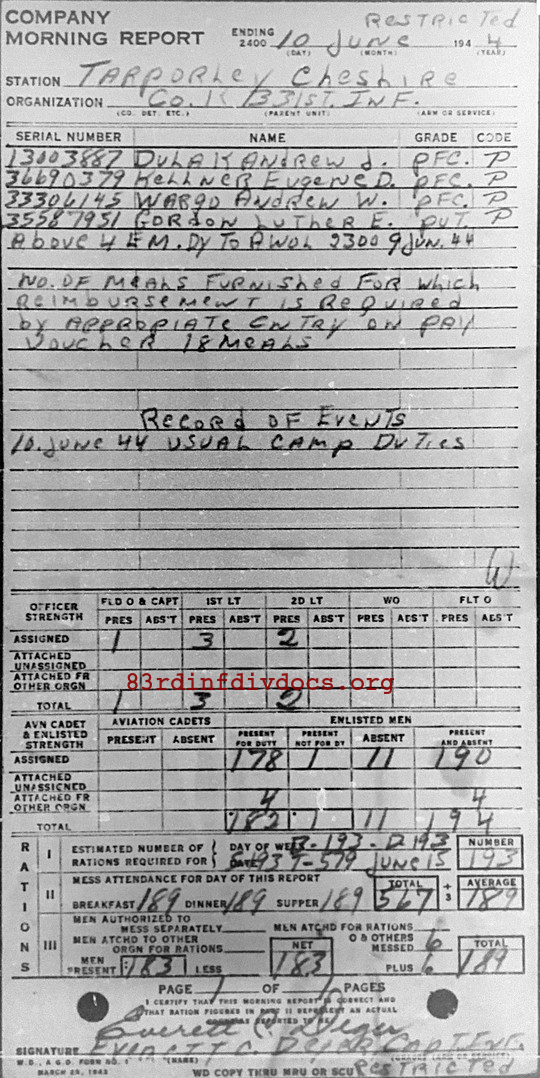 RESTRICTED
COMPANY MORNING REPORT ENDING 2400 10 JUNE 1944
(DAY) (MONTH) (YEAR)
STATION TARPORLEY CHESHIRE
ORGANIZATION CO. K 331ST. INF.
(CO. DET. ETC.) (PARENT UNIT) (ARM OR SERVICE)
SERIAL NUMBER NAME GRADE CODE
13003887 DULAK ANDREW J. PFC. P
36690379 KELLNER EUGENE D. PFC. P
33306145 WARGO ANDREW W. PFC. P
35587951 GORDON LUTHER E. PVT. P
ABOVE 4 EM. DY TO AWOL 2300 9 JUN. 44
NO. OF MEALS FURNISHED FOR WHICH
REIMBURSEMENT IS REQUIRED
BY APPROPIATE ENTRY ON PAY
VOUCHER 18 MEALS
RECORD OF EVENTS
10. JUNE 44 USUAL CAMP DUTIES
W
OFFICER STRENGTH FLD O & CAPT 1ST LT 2D LT WO FLT O
PRES ABS'T PRES ABS'T PRES ABS'T PRES ABS'T PRES ABS'T
ASSIGNED 1 3 2
ATTACHED UNASSIGNED
ATTACHED FR OTHER ORGN
83rdinfdivdocs.org
TOTAL 1 3 2
AVN CADET & ENLISTED STRENGTH AVIATION CADETS ENLISTED MEN
PRESENT ABSENT PRESENT FOR DUTY PRESENT NOT FOR DY ABSENT PRESENT AND ABSENT
ASSIGNED 178 1 11 190
ATTACHED UNASSIGNED
ATTACHED FR OTHER ORGN 4 4
TOTAL 182 1 11 194
RATIONS
I ESTIMATED NUMBER OF RATIONS REQUIRED FOR DAY OF WEEK B-193-D193 NUMBER
DATE 193 T-579 JUNE 15 193
II MESS ATTENDANCE FOR DAY OF THIS REPORT TOTAL ÷ 3 AVERAGE
BREAKFAST 189 DINNER 189 SUPPER 189 567 189
III MEN AUTHORIZED TO MESS SEPARATELY MEN ATCHD FOR RATIONS
MEN ATCHD TO OTHER ORGN FOR RATIONS NET O & OTHERS MESSED 6 TOTAL
MEN PRESENT 183 LESS 183 PLUS 6 189
PAGE 1 OF 1 PAGES
I CERTIFY THAT THIS MORNING REPORT IS CORRECT AND
THAT RATION FIGURES IN PART II REPRESENT AN ACTUAL
COUNT AS REPORTED TO ME
SIGNATURE EVERETT C. CAPT INF.
W.D., A.G.O. FORM NO. 1 (NAME)
MARCH 25, 1943 WD COPY THRU MRU OR SCU RESTRICTED